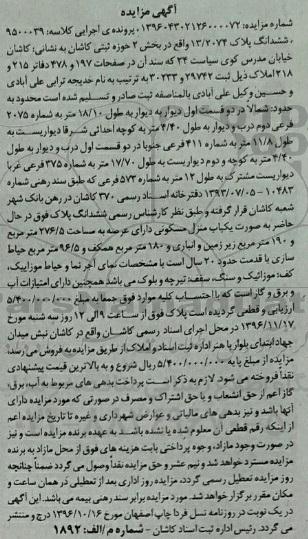 آگهی مزایده
شماره مزایده: ۱۳۹۶۰۴۳۰۲۱۲۶۰۰۰۰۷۲ پرونده ی اجرایی کلاسه: ۹۵۰۰۰۳۹
، ششدانگ پلاک ۱۳/۲۰۷۴ واقع در بخش ۲ حوزه ثبتی کاشان به نشانی: کاشان
خیابان مدرس کوی سیاست ۲۴ که سند آن در صفحات ۱۹۷ و ۴۷۸ دفاتر ۲۱۵ و
۲۱۸ املاک ذیل ثبت ۲۹۷۴۲ و ۳۰۲۳۳ به ترتیب به نام خدیجه ترابی علی آبادی
و حسین وکیل علی آبادی بالمناصفه ثبت صادر و تسلیم شده است محدود به
حدود: شمالا در دو قسمت اول دیوار به دیوار به طول ۱۸/۱۰ متر به شماره ۲۰۷۵
فرعی دوم درب و دیوار به طول ۴/۴۰ متر به کوچه احداثی شرقا دیواریست به
طول ۱۱/۸ متر به شماره ۴۱۱ فرعی جنوبا در دو قسمت اول درب و دیوار به طول
۴/۴۰ متر به کوچه و دوم دیواریست به طول ۱۷/۷۰ متر به شماره ۳۷۵ فرعی غربا
دیواریست مشترک به طول ۱۲ متر به شماره ۵۷۳ فرعی که طبق سند رهنی شماره
۱۰۴۸۳ - ۱۳۹۳/۰۷/۰۵ دفترخانه اسناد رسمی ۳۷۰ کاشان در رهن بانک شهر
شعبه کاشان قرار گرفته و طبق نظر کارشناس رسمی ششدانگ پلاک فوق در حال
حاضر به صورت یکباب منزل مسکونی دارای عرصه به مساحت ۲۷۶/۵ متر مربع
و ۱۹۰ متر مربع زیر زمین و انباری و ۱۸۰ متر مربع همکف و ۹۶/۵ متر مربع حیاط
سازی با قدمت حدود ۲۰ سال است با مشخصات نمای آجر نما و حیاط موزاییک،
کف: موزائیک و سنگ، سقف: تیرچه و بلوک می باشد همچنین دارای امتیازات آب
و برق و گاز است که با احتساب کلیه موارد فوق جمعا به مبلغ ۵/۴۰۰/۰۰۰/۰۰۰
ارزیابی و قطعی گردیده است پلاک فوق از ساعت ۹ الی ۱۲ روز سه شنبه مورخ
۱۳۹۶/۱۱/۱۷ در محل اجرای اسناد رسمی کاشان واقع در کاشان نبش میدان
جهاد ابتدای بلوار باهنر اداره ثبت اسناد و املاک از طریق مزایده به فروش می رسد،
مزایده از مبلغ پایه ۵/۴۰۰/۰۰۰/۰۰۰ ریال شروع و به بالاترین قیمت پیشنهادی
نقدا فروخته می شود. لازم به ذکر است پرداخت بدهی های مربوط به آب، برق،
گاز اعم از حق انشعاب و یا حق اشتراک و مصرف در صورتی که مورد مزایده دارای
آنها باشد و نیز بدهی های مالیاتی و عوارض شهرداری و غیره تا تاریخ مزایده اعم
از اینکه رقم قطعی آن معلوم شده یا نشده باشد به عهده برنده مزایده است و نیز
در صورت وجود مازاد، وجوه پرداختی بابت هزینه های فوق از محل مازاد به برنده
مزایده مسترد خواهد شد و نیم عشر و حق مزایده نقدا وصول می گردد ضمنا چنانچه
روز مزایده تعطیل رسمی گردد، مزایده روز اداری بعد از تعطیلی در همان ساعت و
مکان مقرر برگزار خواهد شد. مورد مزایده برابر سند رهنی بیمه می باشد. این آگهی
در یک نوبت در روزنامه نسل فردا چاپ اصفهان مورخ ۱۳۹۶/۱۰/۱۶ درج و منتشر
می گردد. رئیس اداره ثبت اسناد کاشان - شماره م/الف: ۱۸۹۲